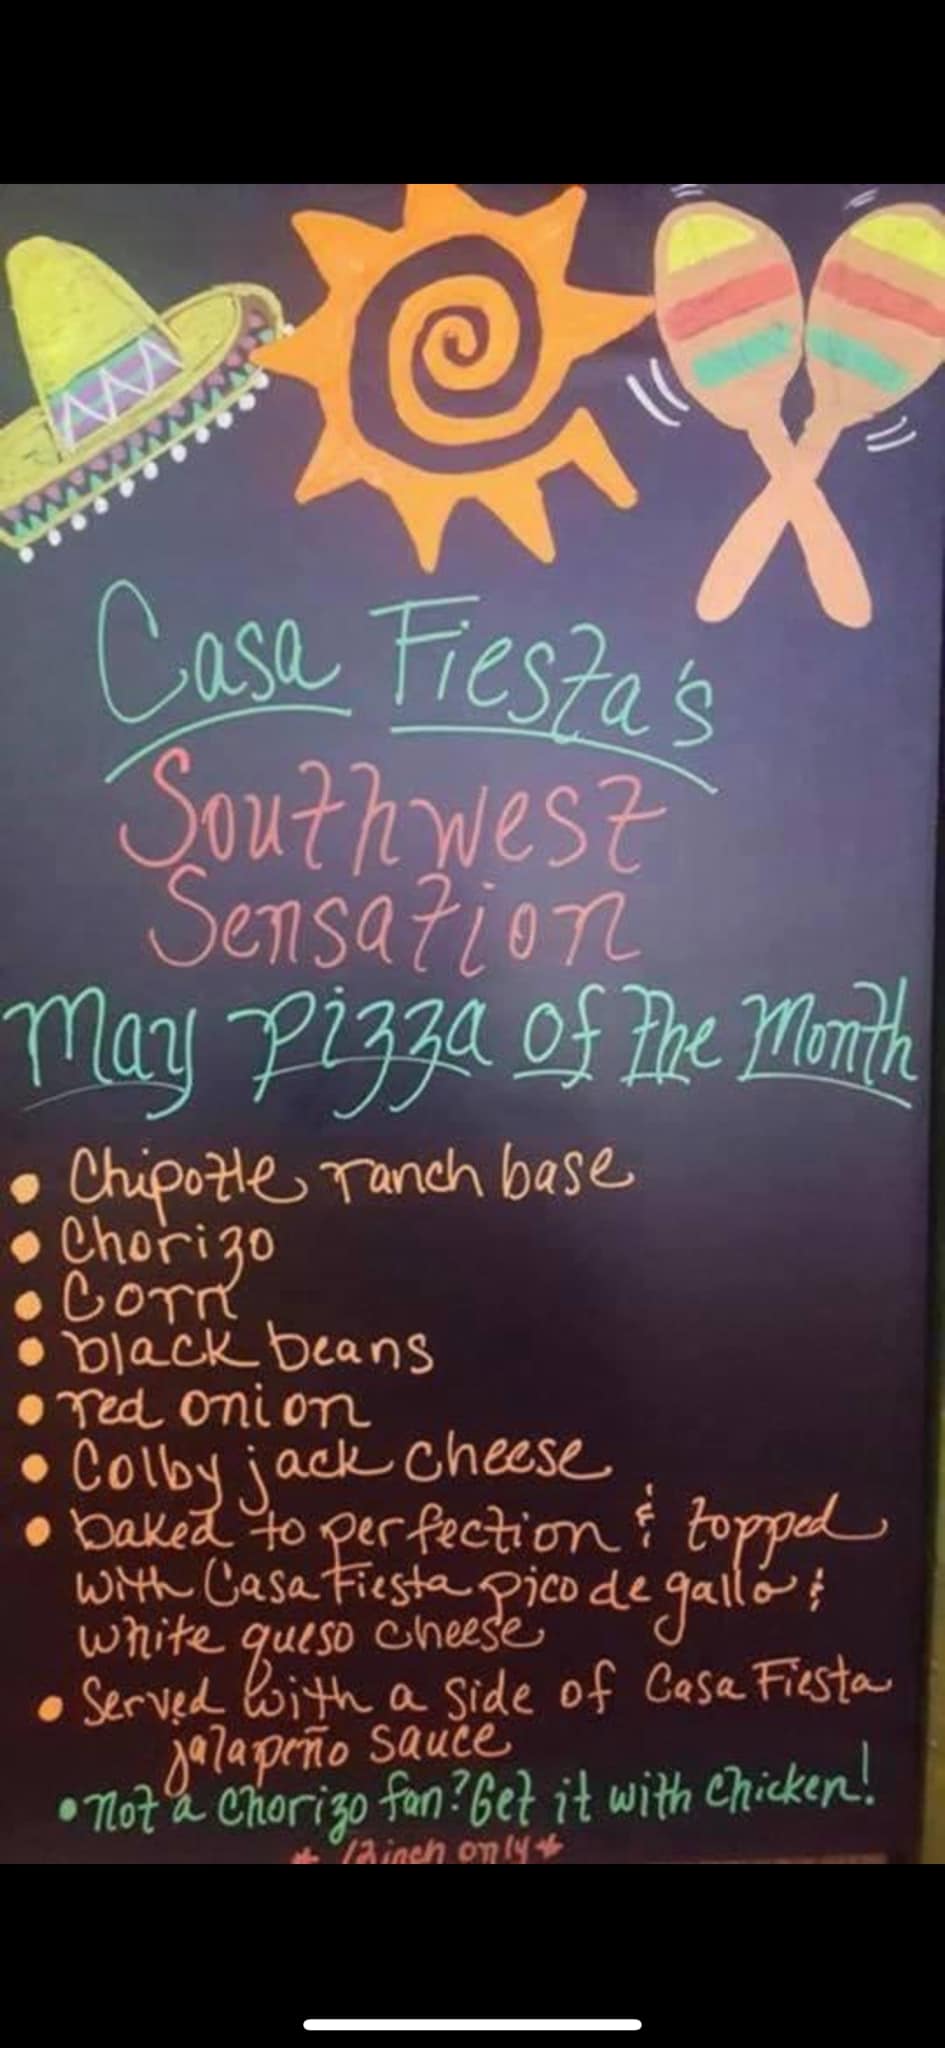 Casa Fiesta's
Southwest
Sensation
May Pizza of the Month
• Chipotle ranch base
• Chorizo
• Corn
• black beans
• red onion
• Colby jack cheese
• baked to perfection & topped
with Casa Fiesta pico de gallo &
white queso cheese
• Served with a side of Casa Fiesta
jalapeño sauce
• not a Chorizo fan? Get it with chicken!
* 12 inch only *